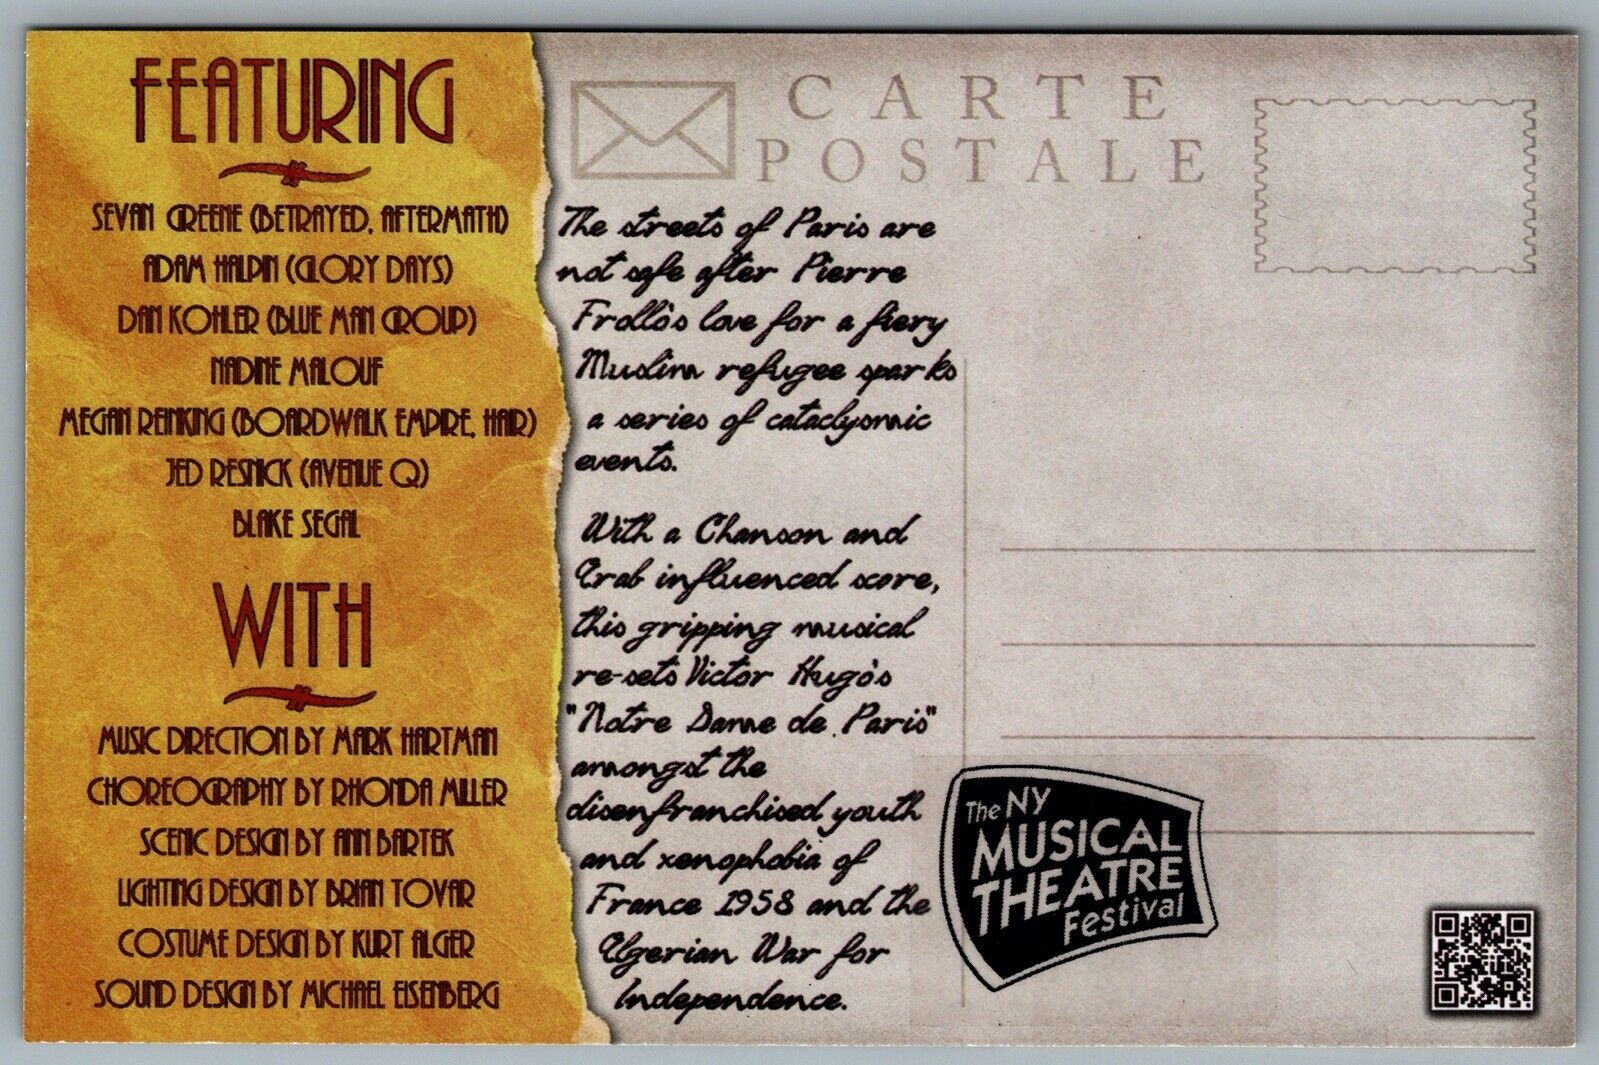 FEATURING
SEVAN GREENE (BETRAYED, AFTERMATH)
ADAM HALPIN (GLORY DAYS)
DAN KOHLER (BLUE MAN GROUP)
NADINE MALOUF
MEGAN REINKING (BOARDWALK EMPIRE, HAIR)
JED RESNICK (AVENUE Q)
BLAKE SEGAL
WITH
MUSIC DIRECTION BY MARK HARTMAN
CHOREOGRAPHY BY RHONDA MILLER
SCENIC DESIGN BY ANN BARTEK
LIGHTING DESIGN BY BRIAN TOVAR
COSTUME DESIGN BY KURT ALGER
SOUND DESIGN BY MICHAEL EISENBERG
CARTE
POSTALE
The streets of Paris are
not safe after Pierre
Frollo's love for a fiery
Muslim refugee sparks
a series of cataclysmic
events.
With a Chanson and
Arab influenced score,
this gripping musical
re-sets Victor Hugo's
"Notre Dame de Paris"
amongst the
disenfranchised youth
and xenophobia of
France 1958 and the
Algerian War for
Independence.
The NY
MUSICAL
THEATRE
Festival